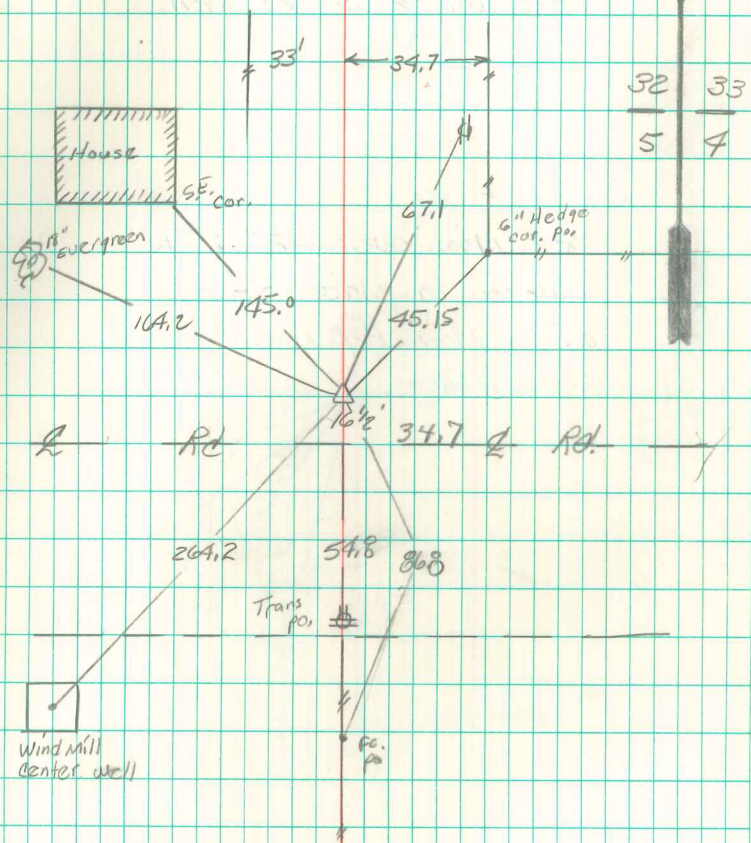 33'
34.7
32 33
5 4
House
S.E. cor.
18" evergreen
67.1
6" Hedge
cor. po.
164.2
145.0
45.15
16 1/2'
34.7
℄ Rd ℄ Rd.
264.2
54.8
86.8
Trans
po.
fc.
po
Wind Mill
Center well